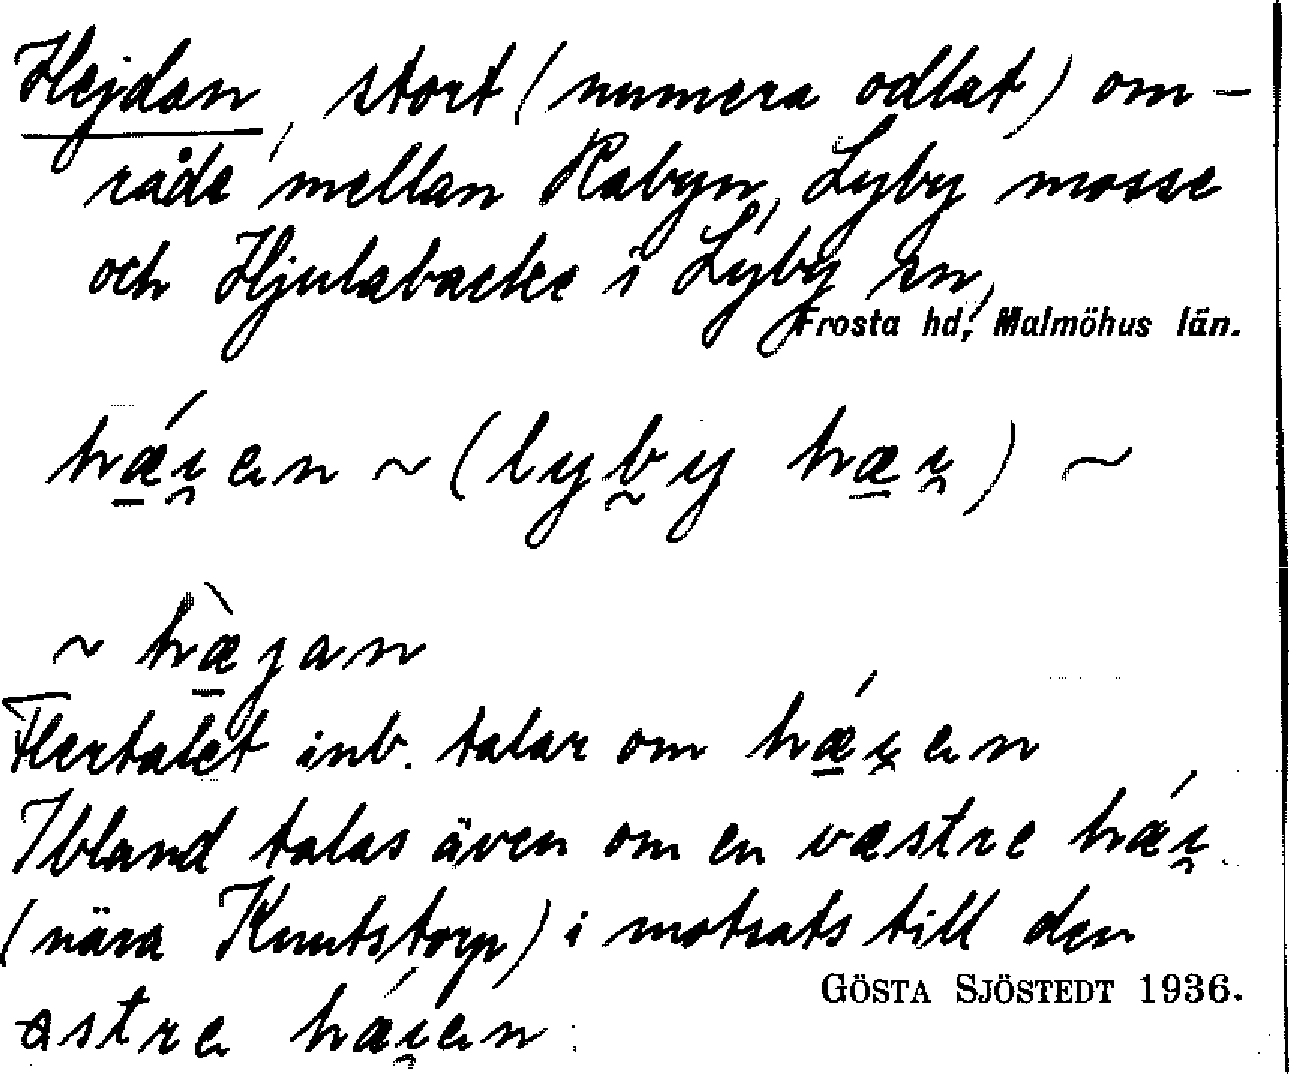 Hejdan, stort (numera odlat) om-
råde mellan Rabyn, Lyby mosse
och Hjulabacke i Lyby sn,
Frosta hd, Malmöhus län.
hǽi̯en ~ (lyby hæi̯) ~
~ hæ̀jan
Flertalet inb. talar om hǽi̯en
Ibland talas även om en væstre hǽi̯
(nära Knutstorp) i motsats till den
GÖSTA SJÖSTEDT 1936.
østre hǽi̯en